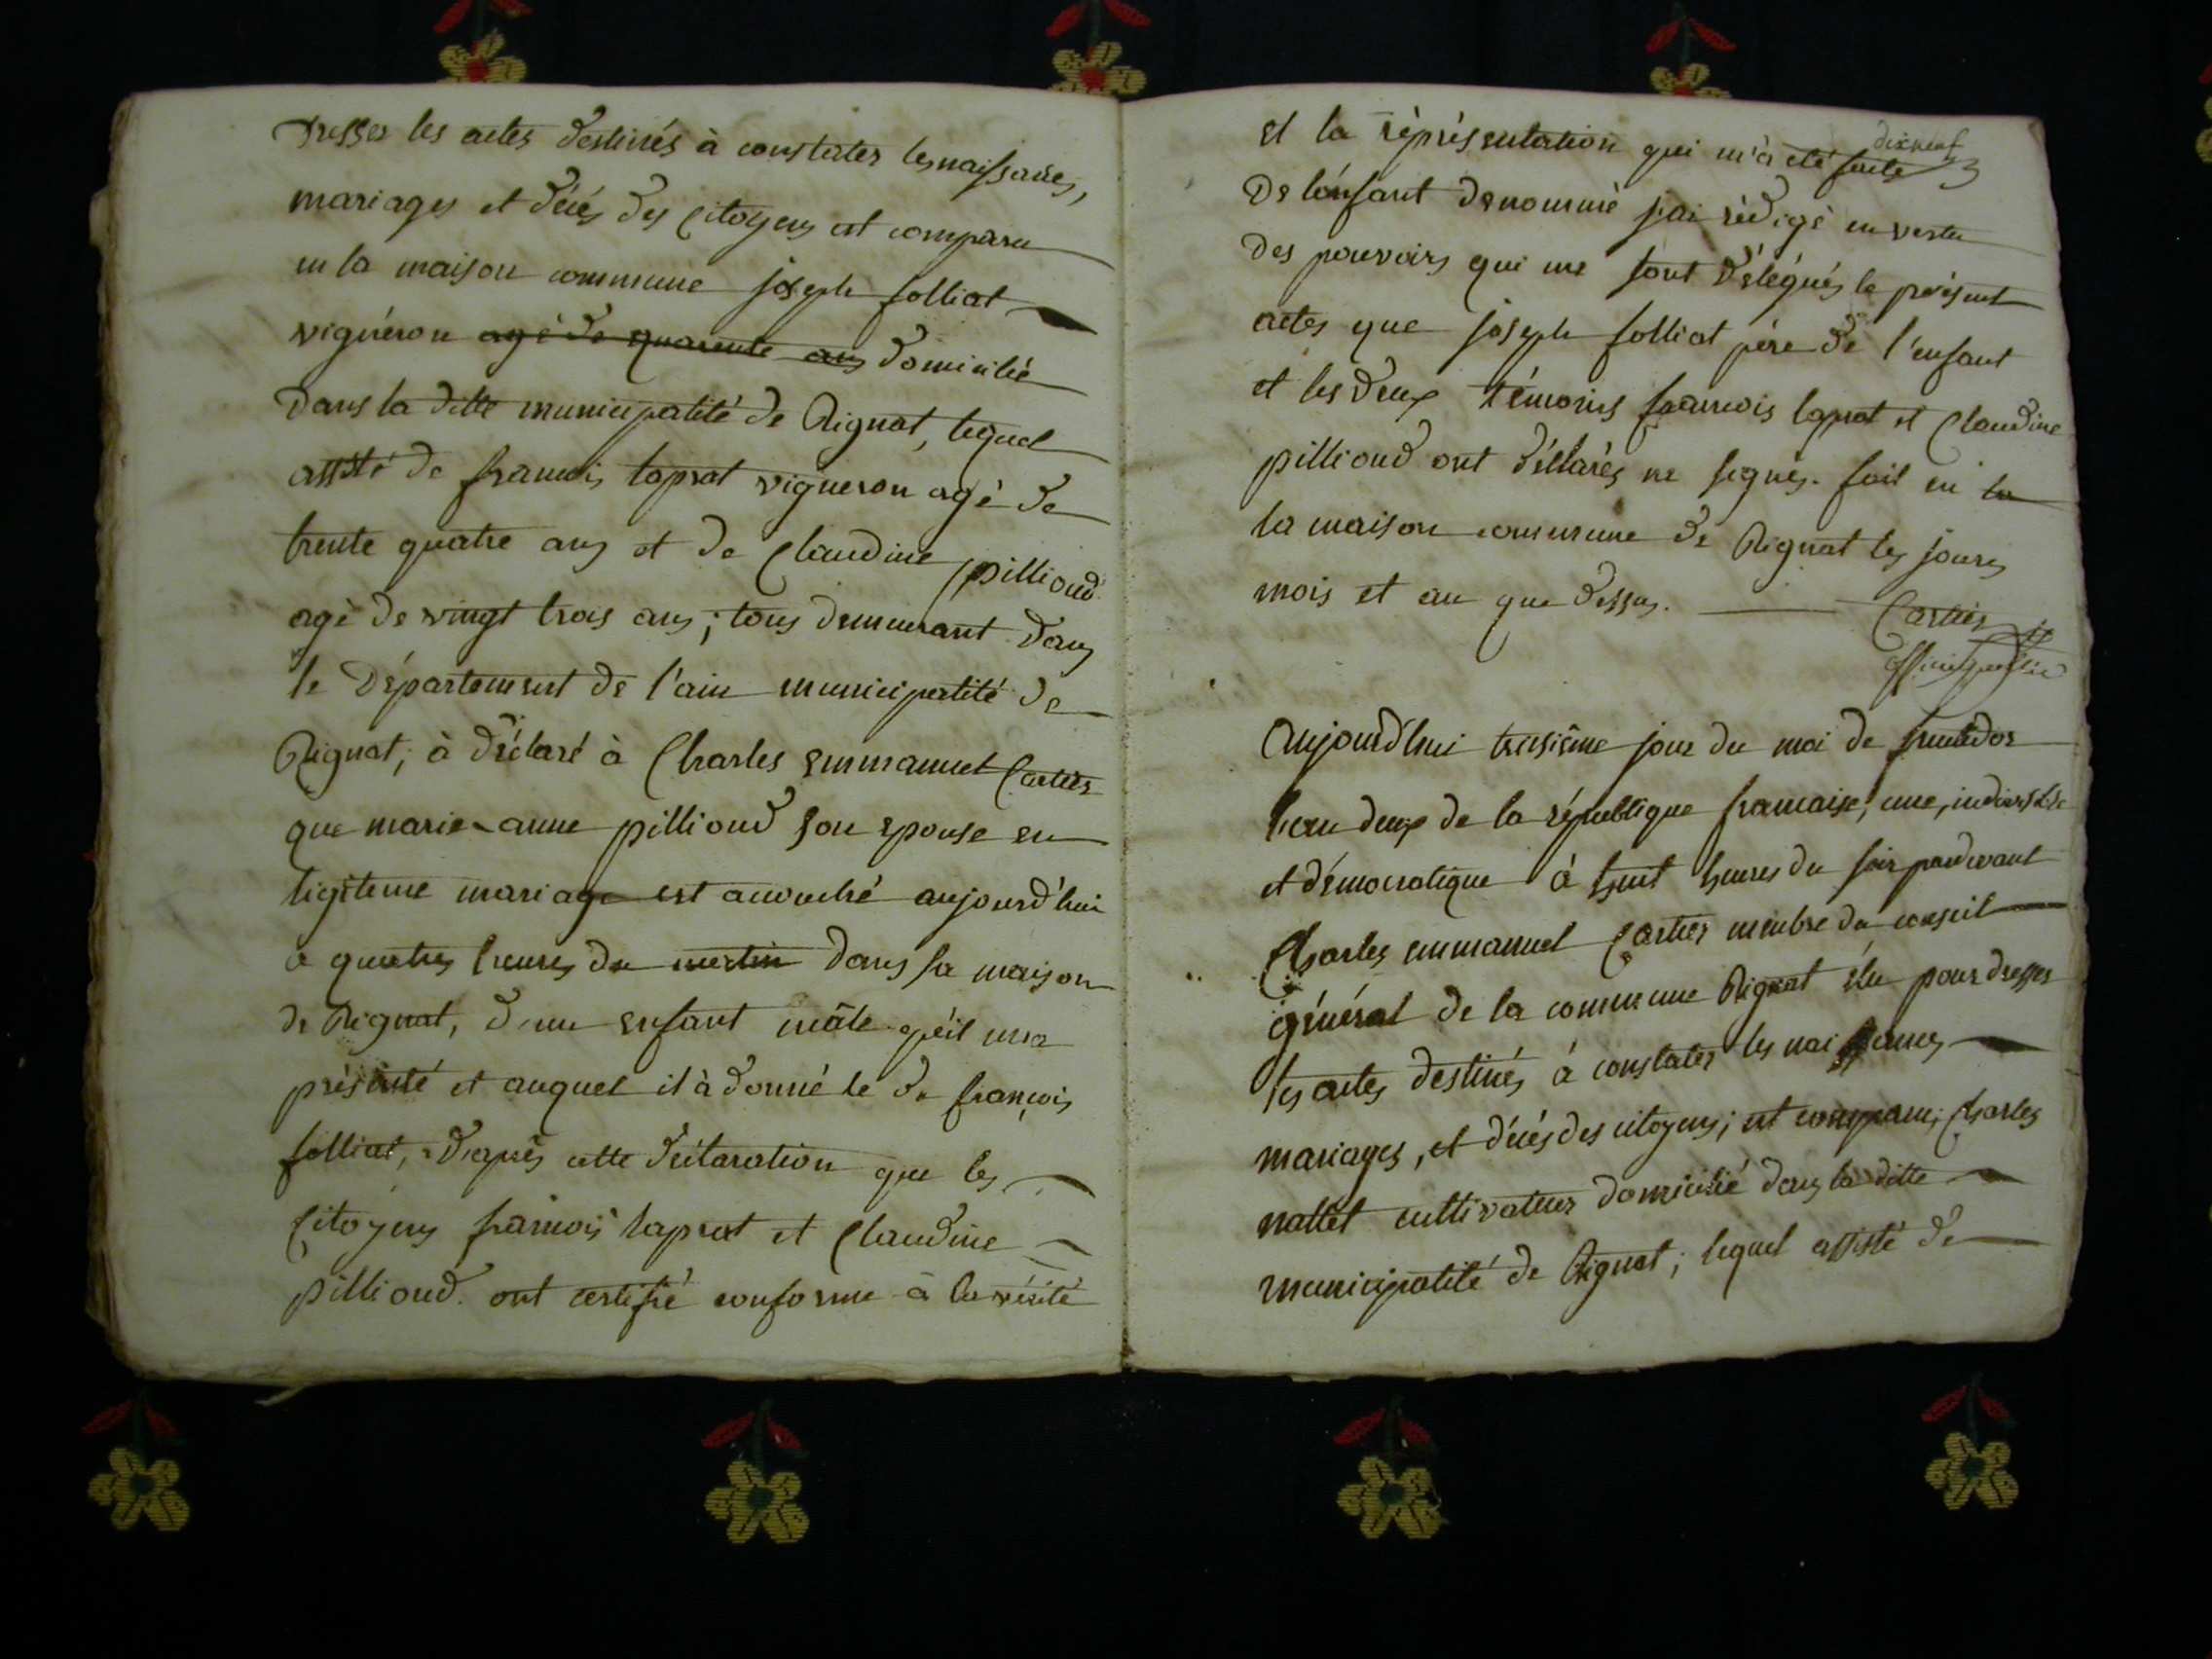 dresser les actes destinés à constater les naissances,
mariages et décés des Citoyens est comparu
en la maison commune joseph folliat
vignéron agé de quarente ans domicilié
dans la ditte municipalité de Rignat, lequel
assité de francois laprat vigneron agé de
trente quatre ans et de Claudine pillioud
agé de vingt trois ans; tous demeurant dans
le Département de l'ain municipalité de
Rignat; à déclaré à Charles emmanuel Cartier
que marie-anne pillioud son epouse en
ligiteme mariage est acouché aujourd'hui
a quatres heures du matin dans sa maison
de Rignat, d'un enfant mâle qu'il ma
présenté et auquel il à donné le de françois
folliat, d'aprés cette déclaration que les
Citoyens francois laprat et Claudine
pillioud. ont certifié conforme à la vérité
dixneuf
et la réprésentation qui m'à été faite
De lénfant denommé j'ai rédigé en vertu
des pouvoirs qui me sont délégués le présent
actes que joseph folliat pére de l'enfant
et les deux témoins francois laprat et Claudine
pillioud ont déllarés ne signés. fait en la
la maison commune de Rignat les jours
mois et an que dessus. Cartier
officier public
Aujourd'hui troisiéme jour du moi de fructidor
l'an deux de la république francaise, une, indivisible
et démocratique à huit heures du soir pardevant
Charles emmanuel Cartier membre du conseil
général de la commune Rignat élu pour dresser
les actes destinés à constater les naissances
mariages, et décés des citoyens; est comparu; Charles
nallet cultivateur domicilié dans la ditte
municipalité de Rignat; lequel assisté de